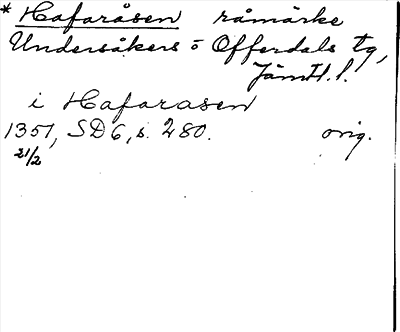 * Hafaråsen råmärke
Undersåkers o Offerdals tg,
Jämtl. l.
i Hafarasen
1351, SD 6, s. 280. orig.
21/2